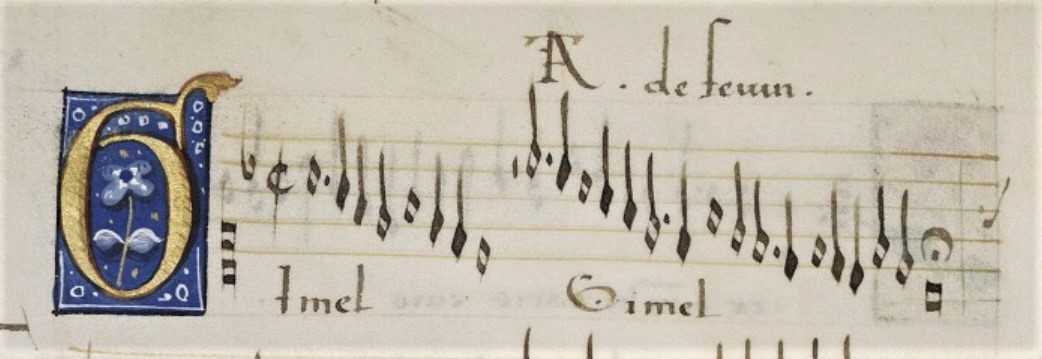 A . de feuin .
Simel Simel